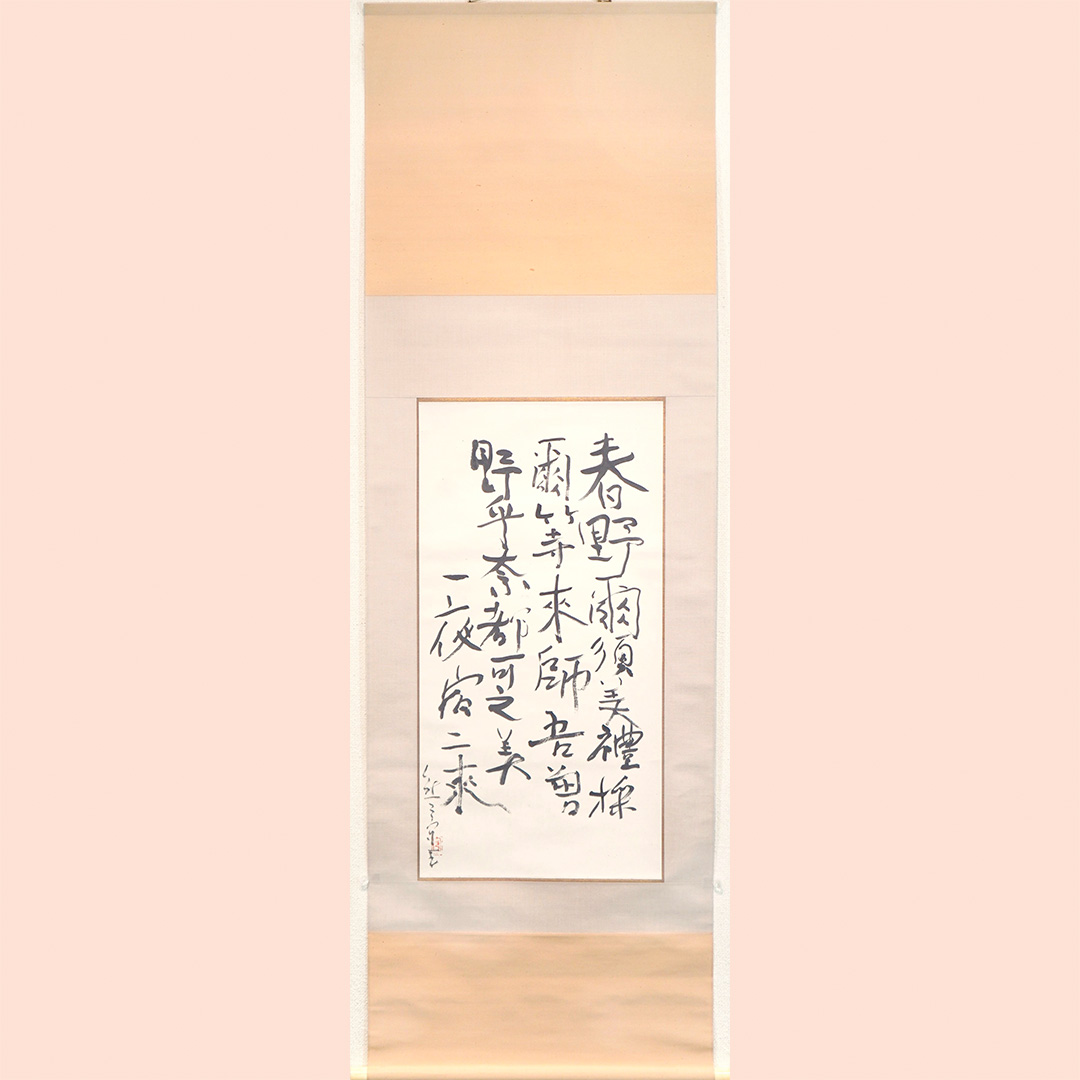 春野爾須美禮採
爾等來師吾曽
野乎奈都可之美
一夜宿二來